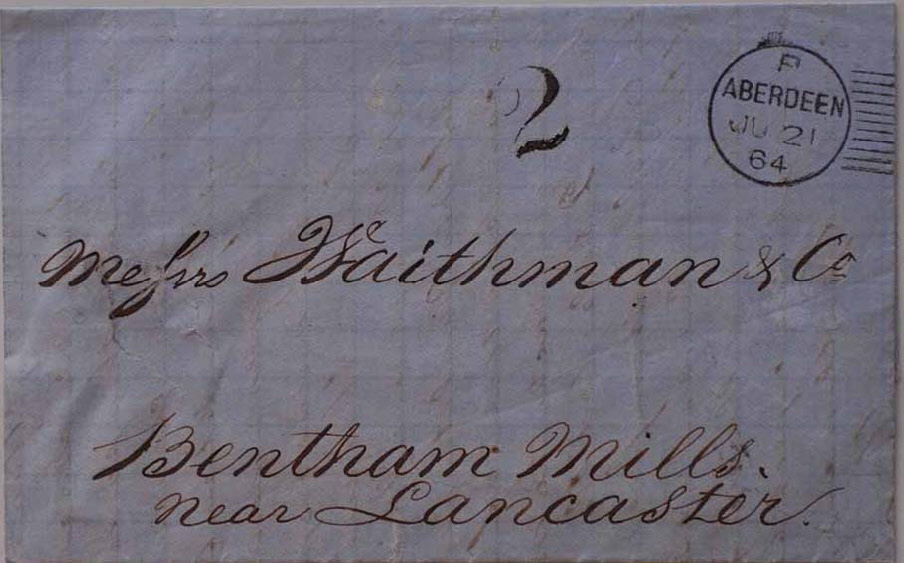 2
P
ABERDEEN
JU 21
64
Messrs Waithman & Co
Bentham Mills.
near Lancaster.